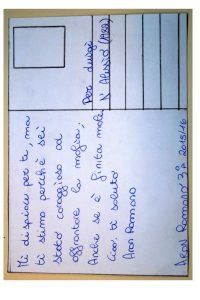 Mi dispiace per te, ma
ti stimo perchè sei
stato coraggioso ad
affrontare la mafia;
Anche se è finita male
Ciao, ti saluto
Aron Romano
Per Luigi
D'Alessio (ARA)
ARON ROMANO 3ª 2015/16